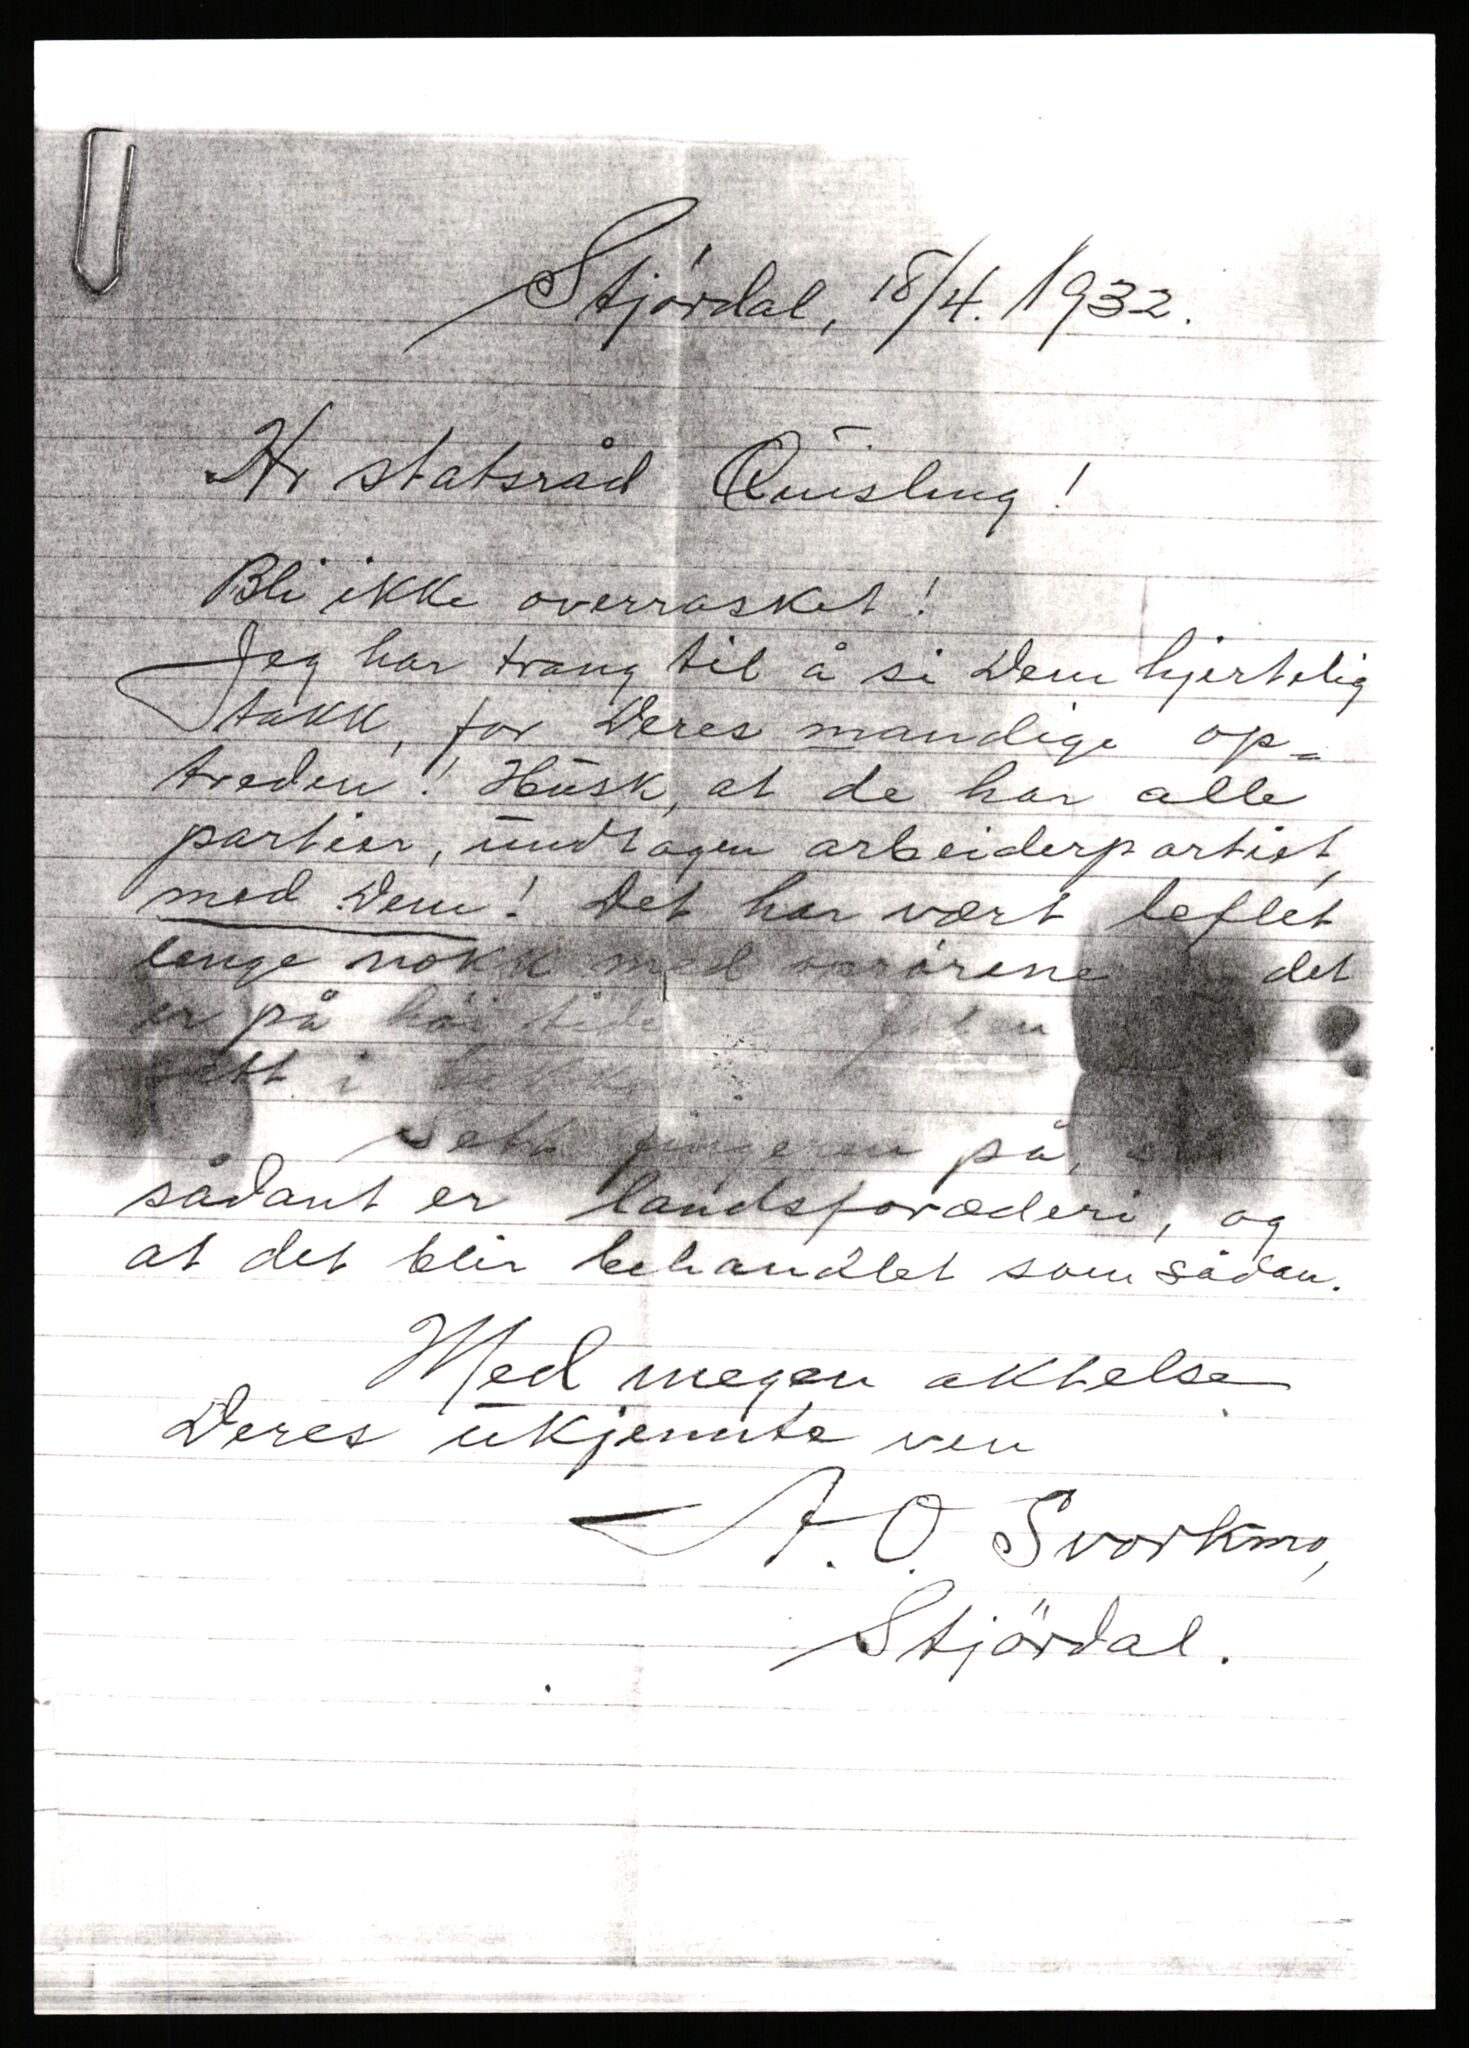 Stjördal, 18/4. 1932.
Hr statsråd Quisling!
Bli ikke overrasket!
Jeg har trang til å si Dem hjertelig
takk, for Deres mandige op=
treden! Husk, at de har alle
partier, undtagen arbeiderpartiet,
med Dem! Det har vært leflet
lenge nokk med det
er på höi tide
ett i
Sett fingeren på,
sådant er landsforæderi, og
at det blir behandlet som sådan.
Med megen aktelse
Deres ukjennte ven
A. O. Svorkmo,
Stjördal.